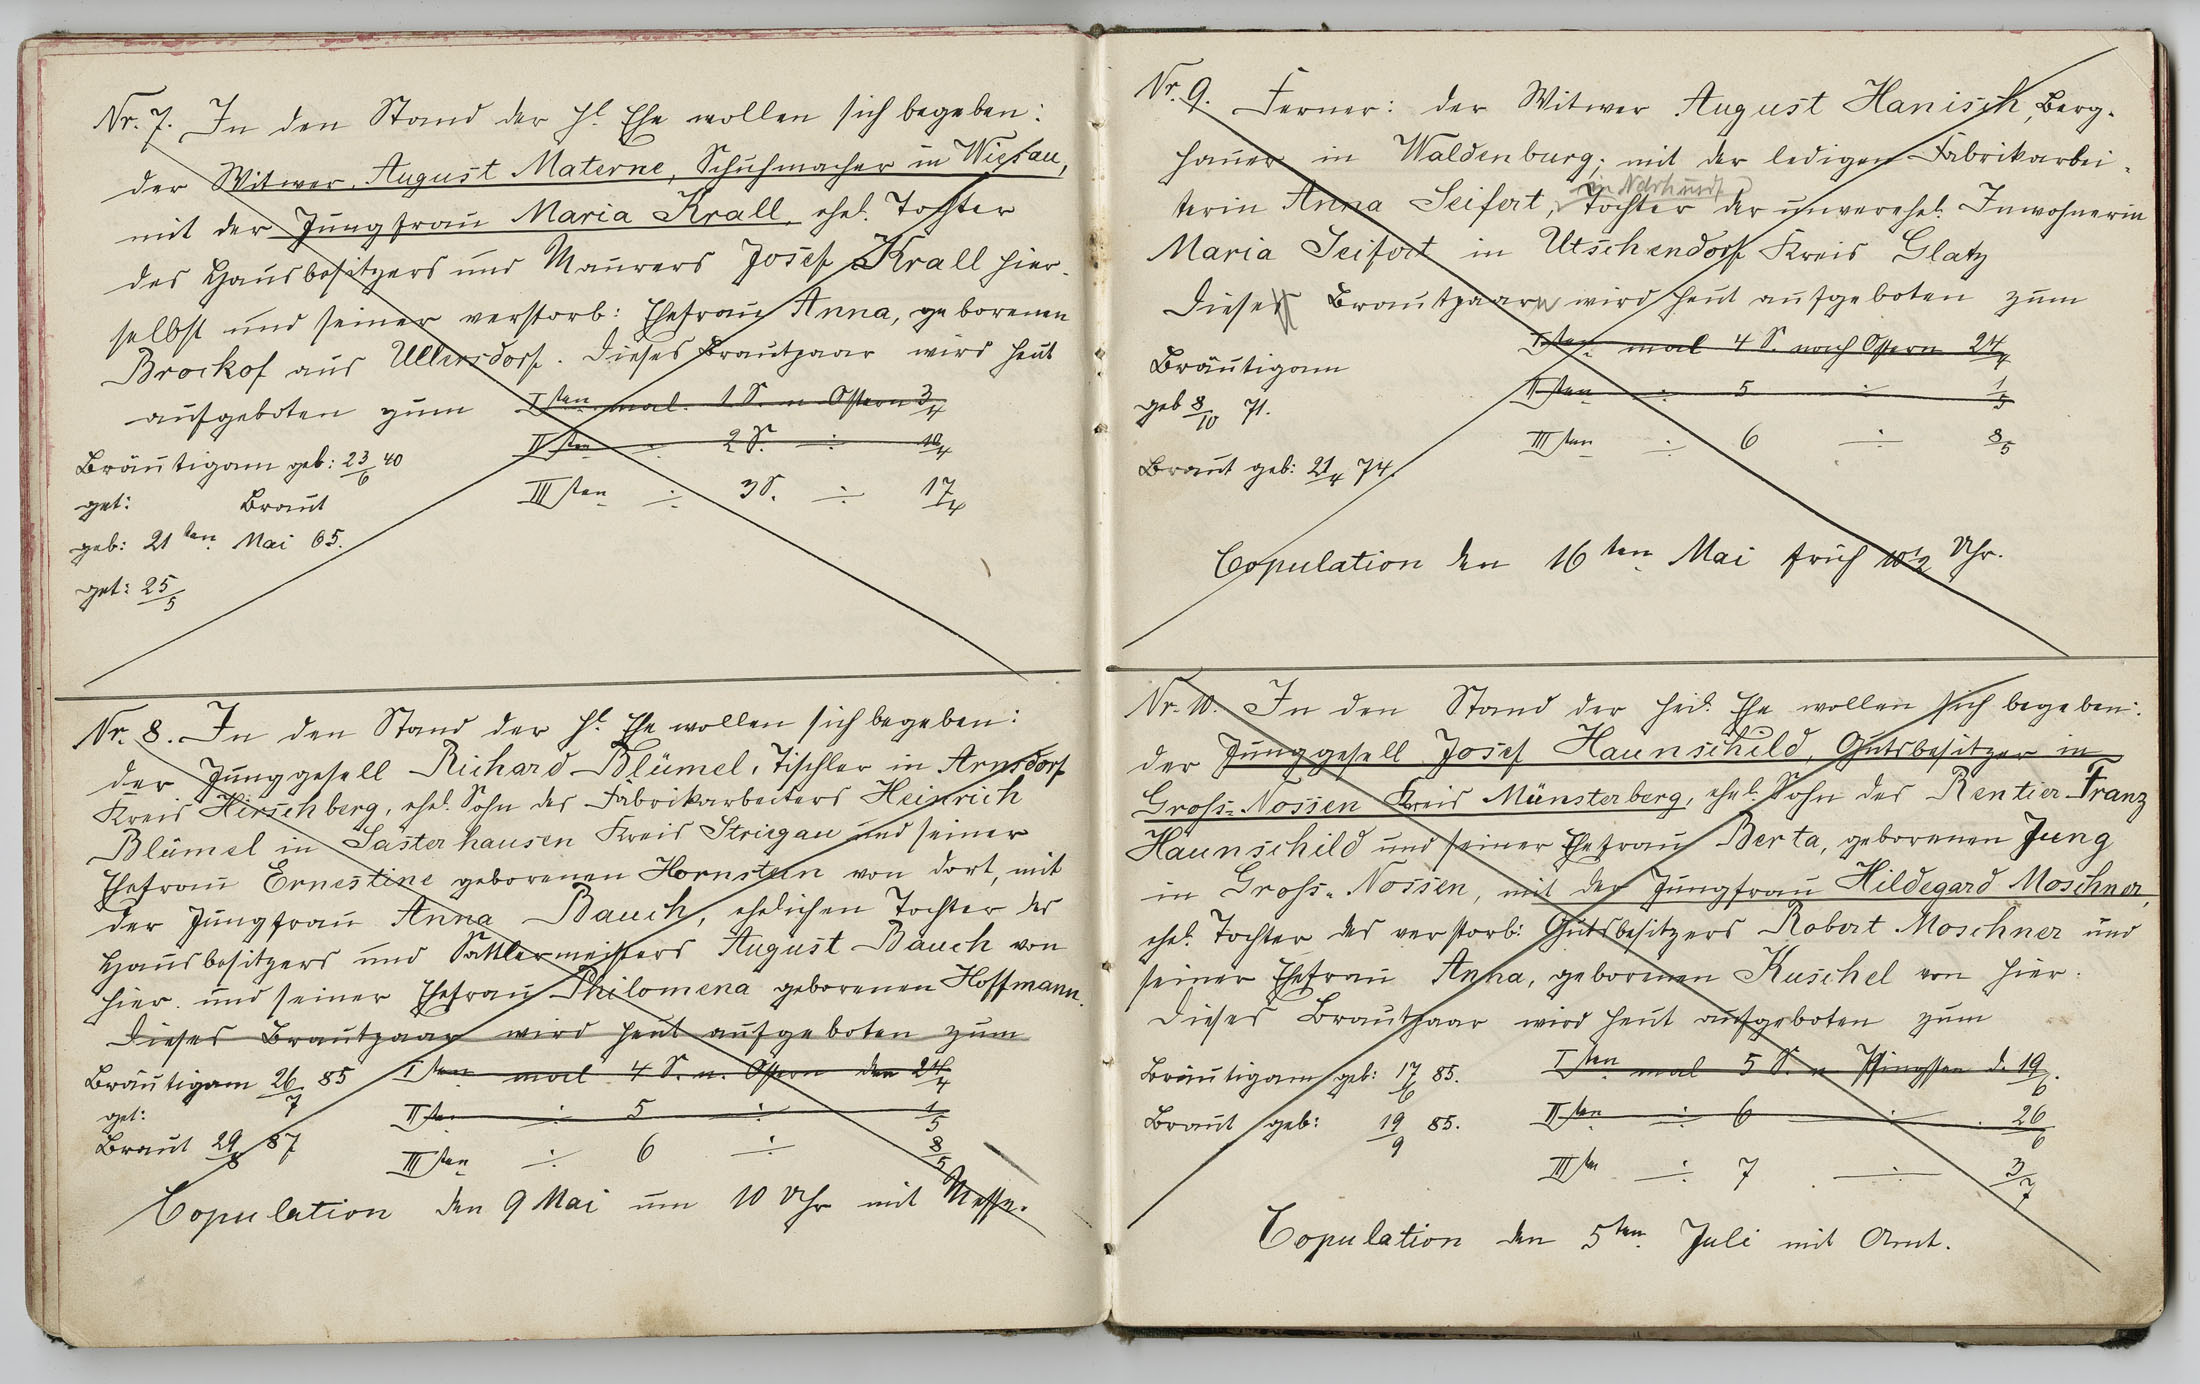 Nr. 7. In den Stand der hl. Ehe wollen sich begeben:
der Witwer August Materne, Schuhmacher in Wiesau,
mit der Jungfrau Maria Krall, ehel. Tochter
des Hausbesitzers und Maurers Josef Krall hier-
selbst und seiner verstorb: Ehefrau Anna, geborenen
Brockof aus Ullersdorf. Dieses Brautpaar wird heut
aufgeboten zum Iten mal. 1 S. n Ostern 3/4
IIten ÷ 2 S. ÷ 10/4
IIIten ÷ 3 S. ÷ 17/4
Bräutigam geb: 23/6 40
get: Braut
geb: 21ten Mai 65.
get: 25/5
Nr. 8. In den Stand der hl. Ehe wollen sich begeben:
der Junggesell Richard Blümel, Tischler in Arnsdorf
Kreis Hirschberg, ehel. Sohn des Fabrikarbeiters Heinrich
Blümel in Sasterhausen Kreis Striegau und seiner
Ehefrau Ernestine geborenen Hornstein von dort, mit
der Jungfrau Anna Bauch, ehelichen Tochter des
Hausbesitzers und Sattlermeisters August Bauch von
hier und seiner Ehefrau Philomena geborenen Hoffmann.
Dieses Brautpaar wird heut aufgeboten zum
Iten mal 4 S. n. Ostern den 24/4
IIten ÷ 5 ÷ 1/5
IIIten ÷ 6 ÷ 8/5
Bräutigam 26/7 85
get:
Braut 29/8 87
Copulation den 9 Mai um 10 Uhr mit Messe.
Nr. 9. Ferner: der Witwer August Hanisch, Berg-
hauer in Waldenburg, mit der ledigen Fabrikarbei-
terin Anna Seifert, Tochter der unverehel. Inwohnerin
Maria Seifert in Utschendorf Kreis Glatz
Dieses Brautpaar wird heut aufgeboten zum
Iten mal 4 S. nach Ostern 24/4
IIten ÷ 5 ÷ 1/5
IIIten ÷ 6 ÷ 8/5
Bräutigam
geb 8/10 71.
Braut geb: 21/4 74.
Copulation den 16ten Mai früh 10 1/2 Uhr.
Nr. 10. In den Stand der heil. Ehe wollen sich begeben:
der Junggesell Josef Haunschild, Gutsbesitzer in
Gross-Nossen Kreis Münsterberg, ehel. Sohn des Rentier Franz
Haunschild und seiner Ehefrau Berta, geborenen Jung
in Gross-Nossen, mit der Jungfrau Hildegard Moschner,
ehel. Tochter des verstorb: Gutsbesitzers Robert Moschner und
seiner Ehefrau Anna, geborenen Kuschel von hier.
Dieses Brautpaar wird heut aufgeboten zum
Iten mal 5 S. n Pfingsten d. 19/6.
IIten ÷ 6 ÷ 26/6
IIIten ÷ 7 ÷ 3/7
Bräutigam geb: 17/6 85.
Braut geb: 19/9 85.
Copulation den 5ten Juli mit Amt.